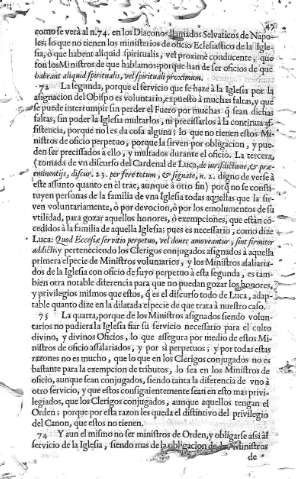 como se verà al n.74. en los Diaconos llamados Selvaticos de Napo-
les; lo que no tienen los ministerios de oficio Eclesiastico de la Igle-
sia, ò que habent aliquid spirituale, vel proximè conducente, que
son los Ministros de que hablamos; porque han de ser oficios de que
habeant aliquid spiritualis, vel spirituali proximum.
72 La segunda, porque el servicio que se haze à la Iglesia por la
assignacion del Obispo es voluntario, expuesto à muchas faltas, y que
se puede interrumpir sin perder el Fuero por muchas q̃ sean dichas
faltas, sin poder la Iglesia multarlos, ni precissarlos à la continua as-
sistencia, porque no les da cosa alguna; lo que no tienen estos Mi-
nistros de oficio perpetuo, porque la sirven por obligacion, y pue-
den ser precissados à ello, y multados durante el oficio. La tercera,
(tomada de vn discurso del Cardenal de Luca, de
discur. 23. per fere totum, & signate, n. 2. digno de verse à
este assunto quanto en èl trae, aunque à otro fin) porq̃ no se consti-
tuyen personas de la familia de vna Iglesia todas aquellas que la sir-
ven voluntariamente, ò por devocion, ò por los emolumentos de su
vtilidad, para gozar aquellos honores, ò exempciones, que estàn co-
cedidos à la familia de aquella Iglesia; pues es necessario, como dize
Luca: Quod Ecclesiæ servitio perpetuo, vel donec amoveantur, sint firmiter
addicti; y perteneciendo los Clerigos conjugados assignados à aquella
primera especie de Ministros voluntarios, y los Ministros assalaria-
dos de la Iglesia con oficio de suyo perpetuo à esta segunda, es tam-
bien otra notable diferencia para que no puedan gozar los honores,
y privilegios mismos que estos, si es el discurso todo de Luca, adap-
table quanto dize en la dilatada especie de que trata à nuestro caso.
73 La quarta, porque de los Ministros assignados siendo volun-
tarios no pudiera la Iglesia fiar su servicio necessario para el culto
divino, y divinos Oficios, lo que assegura por medio de estos Mi-
nistros de oficio assalariados, y por sì perpetuos; y por todas estas
razones no es mucho, que lo que en los Clerigos conjugados no es
bastante para la exempcion de tributos, lo sea en los Ministros de
oficio, aunque sean conjugados, siendo tanta la diferencia de vno à
otro servicio, y que estos consiguientemente sean en esto mas privi-
legiados, que los Clerigos conjugados, aunque aquellos tengan el
Orden; porque por esta razon les queda el distintivo del privilegio
del Canon, que estos no tienen.
74 Y aun el mismo no ser ministros de Orden, y obligarse assi al
servicio de la Iglesia, siendo mas de la obligacion de los Ministros
de